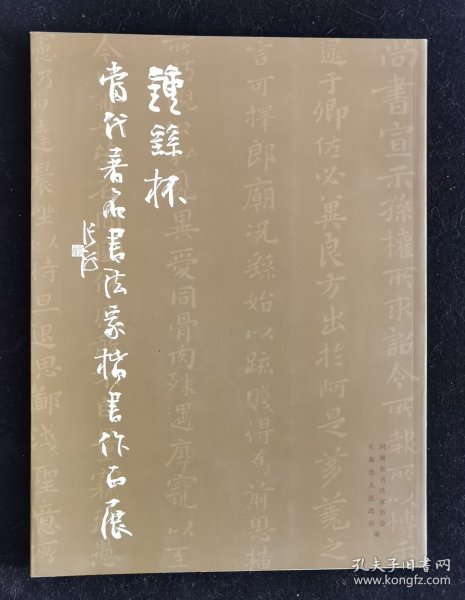 鍾繇杯
当代著名书法家楷书作品展
张海
河南省书法家协会
长葛市人民政府
编
尚書宣示孫權所求詔令所報所以博
示逮于卿佐必冀良方出於阿是芻蕘之
言可擇郎廟況繇始以疏賤得為前恩横
所盰睨公私見異愛同骨肉殊遇厚寵以至
孔夫子旧书网
www.kongfz.com